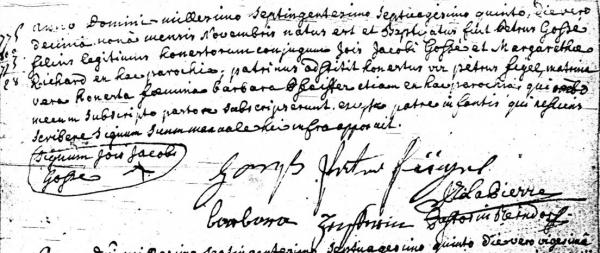 Anno Domini millesimo septingentesimo septuagesimo quinto, die vero
decima nona mensis Novembris natus est et Baptizatus fuit petrus Gosse
filius legitimus honestorum conjugum Jois Jacobi Gosse et Margarethæ
Richard ex hac parochia; patrinus adstitit honestus vir petrus feigel, matrina
vero honesta fœmina barbara Pfeiffer etiam ex hac parochia, qui
mecum subscripto pastore subscripserunt. excepto patre infantis qui nesciens
scribere signum suum manuale hic infra apposuit.
Signum Jois Jacobi
Gosse
peter feigel
barbara
Labierre
Pastor in
septingentesimo septuagesimo quinto die vero vigesima